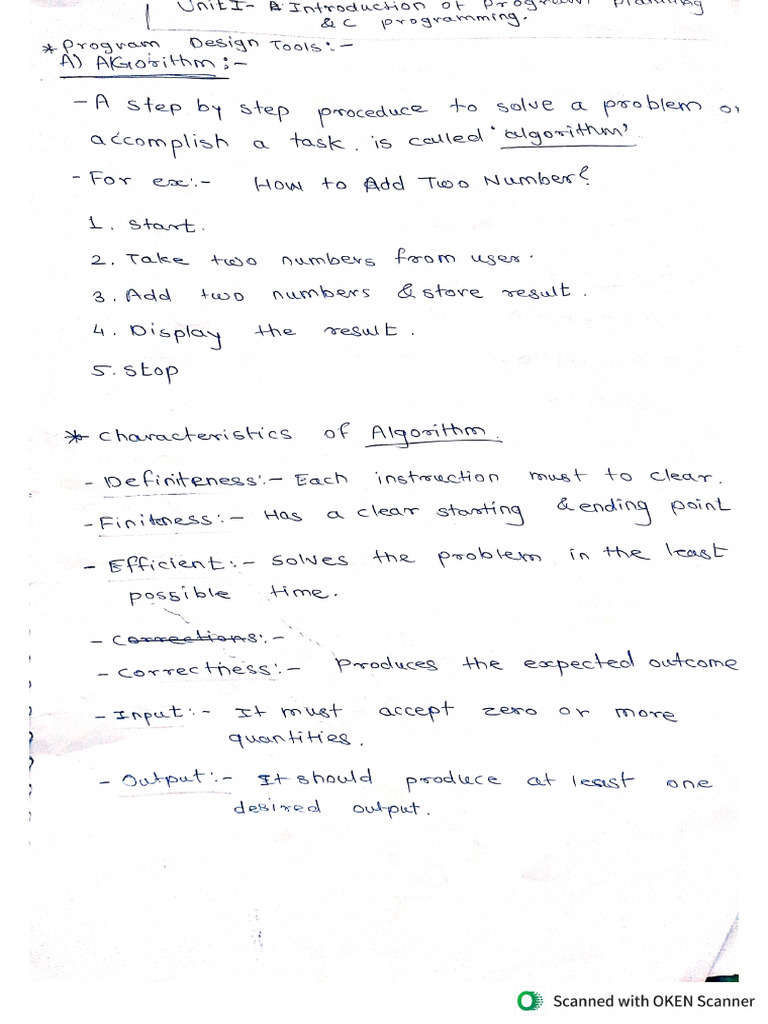 Unit I - Introduction of Program Planning
& C programming.
* Program Design Tools:-
A) Algorithm:-
- A step by step proceduce to solve a problem or
accomplish a task. is called 'algorithm'
- For ex:- How to Add Two Number?
1. Start.
2. Take two numbers from user.
3. Add two numbers & store result.
4. Display the result.
5. Stop
* Characteristics of Algorithm.
- Definiteness:- Each instruction must to clear.
- Finiteness:- Has a clear starting & ending point
- Efficient:- solves the problem in the least
possible time.
- Corrections:-
- Correctness:- Produces the expected outcome
- Input:- It must accept zero or more
quantities.
- Output:- It should produce at least one
desired output.
Scanned with OKEN Scanner